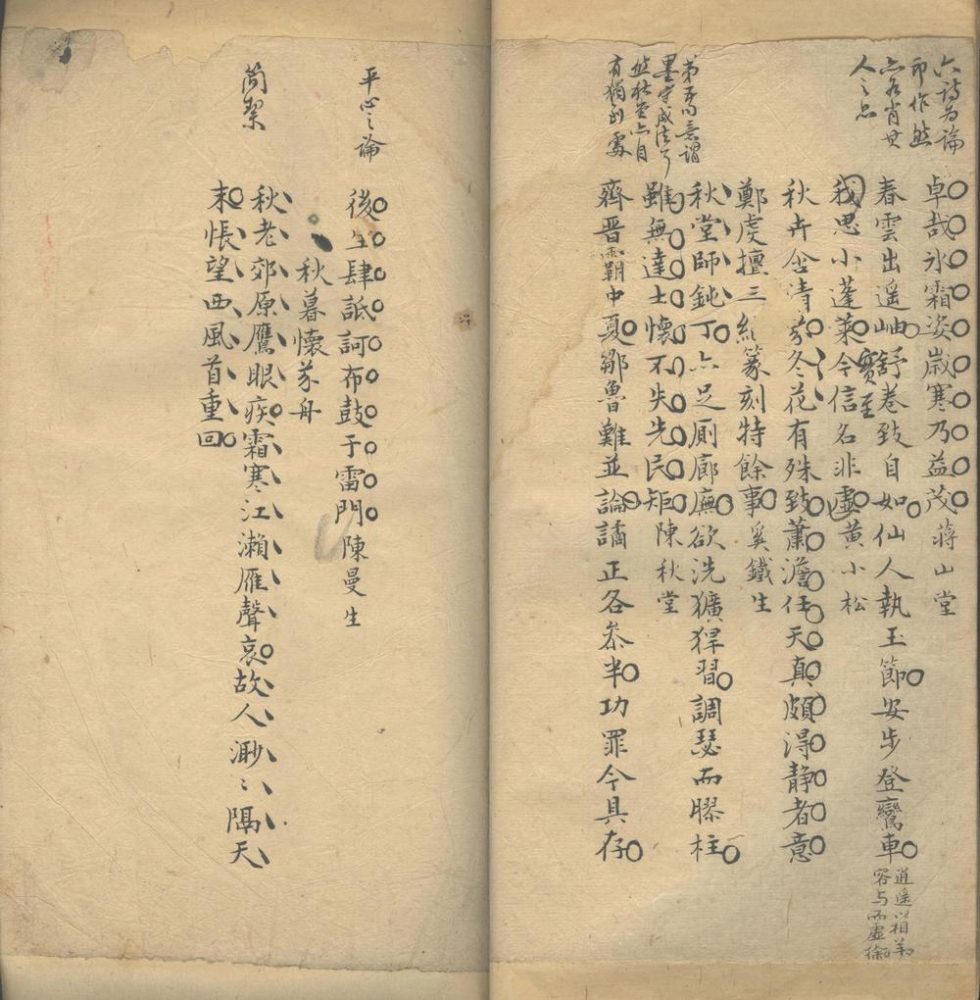 六詩為論
印作然
亦各肖其
人之忠
卓哉氷霜姿歲寒乃益茂蔣山堂
春雲出遥岫舒卷致自如仙人執玉節安步登鸞車
逍遥以相羊
容与而虛徐
我思小蓬萊今信名非虛黃小松
寶至
秋卉含清芬冬花有殊致蕭澹任天真頗得静者意
鄭虔擅三絕篆刻特餘事奚鐵生
弟吾問意謂
墨守成法了
然秋堂亦自
有獨到處
秋堂師鈍丁亦足厠廊廡欲洗獷猂習調瑟而膠柱
雖無達士懷不失先民矩陳秋堂
齊晋霸中夏鄒魯難並論譎正各叅半功罪今具存
平心之論
後生肆詆訶布鼓于雷門陳曼生
秋暮懷芥舟
簡潔
秋老郊原鷹眼疾霜寒江瀨雁聲哀故人渺〻隔天
末悵望西風首重回